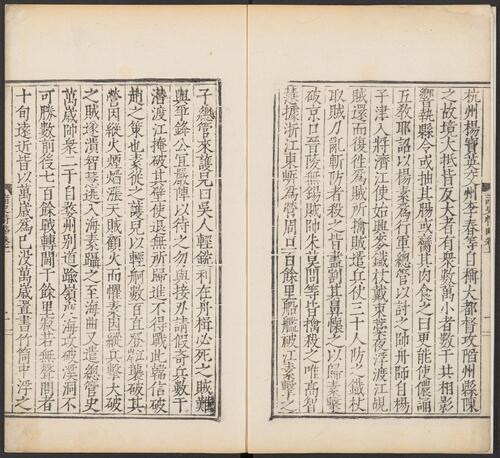 杭州楊寶英交州李春等自稱大都督攻陷州縣陳
之故境大抵皆反大者有衆數萬小者數千共相影
響執縣令或抽其腸或臠其肉食之曰更能使儂誦
五教耶詔以楊素爲行軍總管以討之帥舟師自楊
子津入將濟江使始興麥鐵杖戴束藁夜浮渡江覘
賊還而復往爲賊所擒賊遣兵仗三十人防之鐵杖
取賊刀亂斬防者殺之皆盡割其鼻懷之以歸素擊
破京口晉陵無錫賊帥朱莫問等皆擒殺之唯高智
慧據浙江東岸爲營周亘百餘里船艦被江素擊之
子總管來護兒曰吳人輕銳利在舟楫必死之賊難
與爭鋒公宜嚴陣以待之勿與接刃請假奇兵數千
潛渡江掩破其壁使退無所歸進不得戰此韓信破
趙之策也素從之護兒以輕舸數百直登江岸襲破其
營因縱火煙焰漲天賊顧火而懼素因縱兵擊大破
之賊遂潰智慧逃入海素躡之至海曲又遣總管史
萬歲帥衆二千自婺州别道踰嶺越海攻破溪洞不
可勝數前後七百餘戰轉鬭千餘里寂若無聲聞者
十旬遠近皆以萬歲爲已沒萬歲置書竹筒中浮之